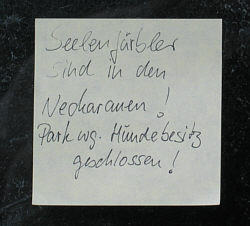 Seelenfärbler
Sind in den
Neckarauen!
Park wg. Hundebesitz
geschlossen!